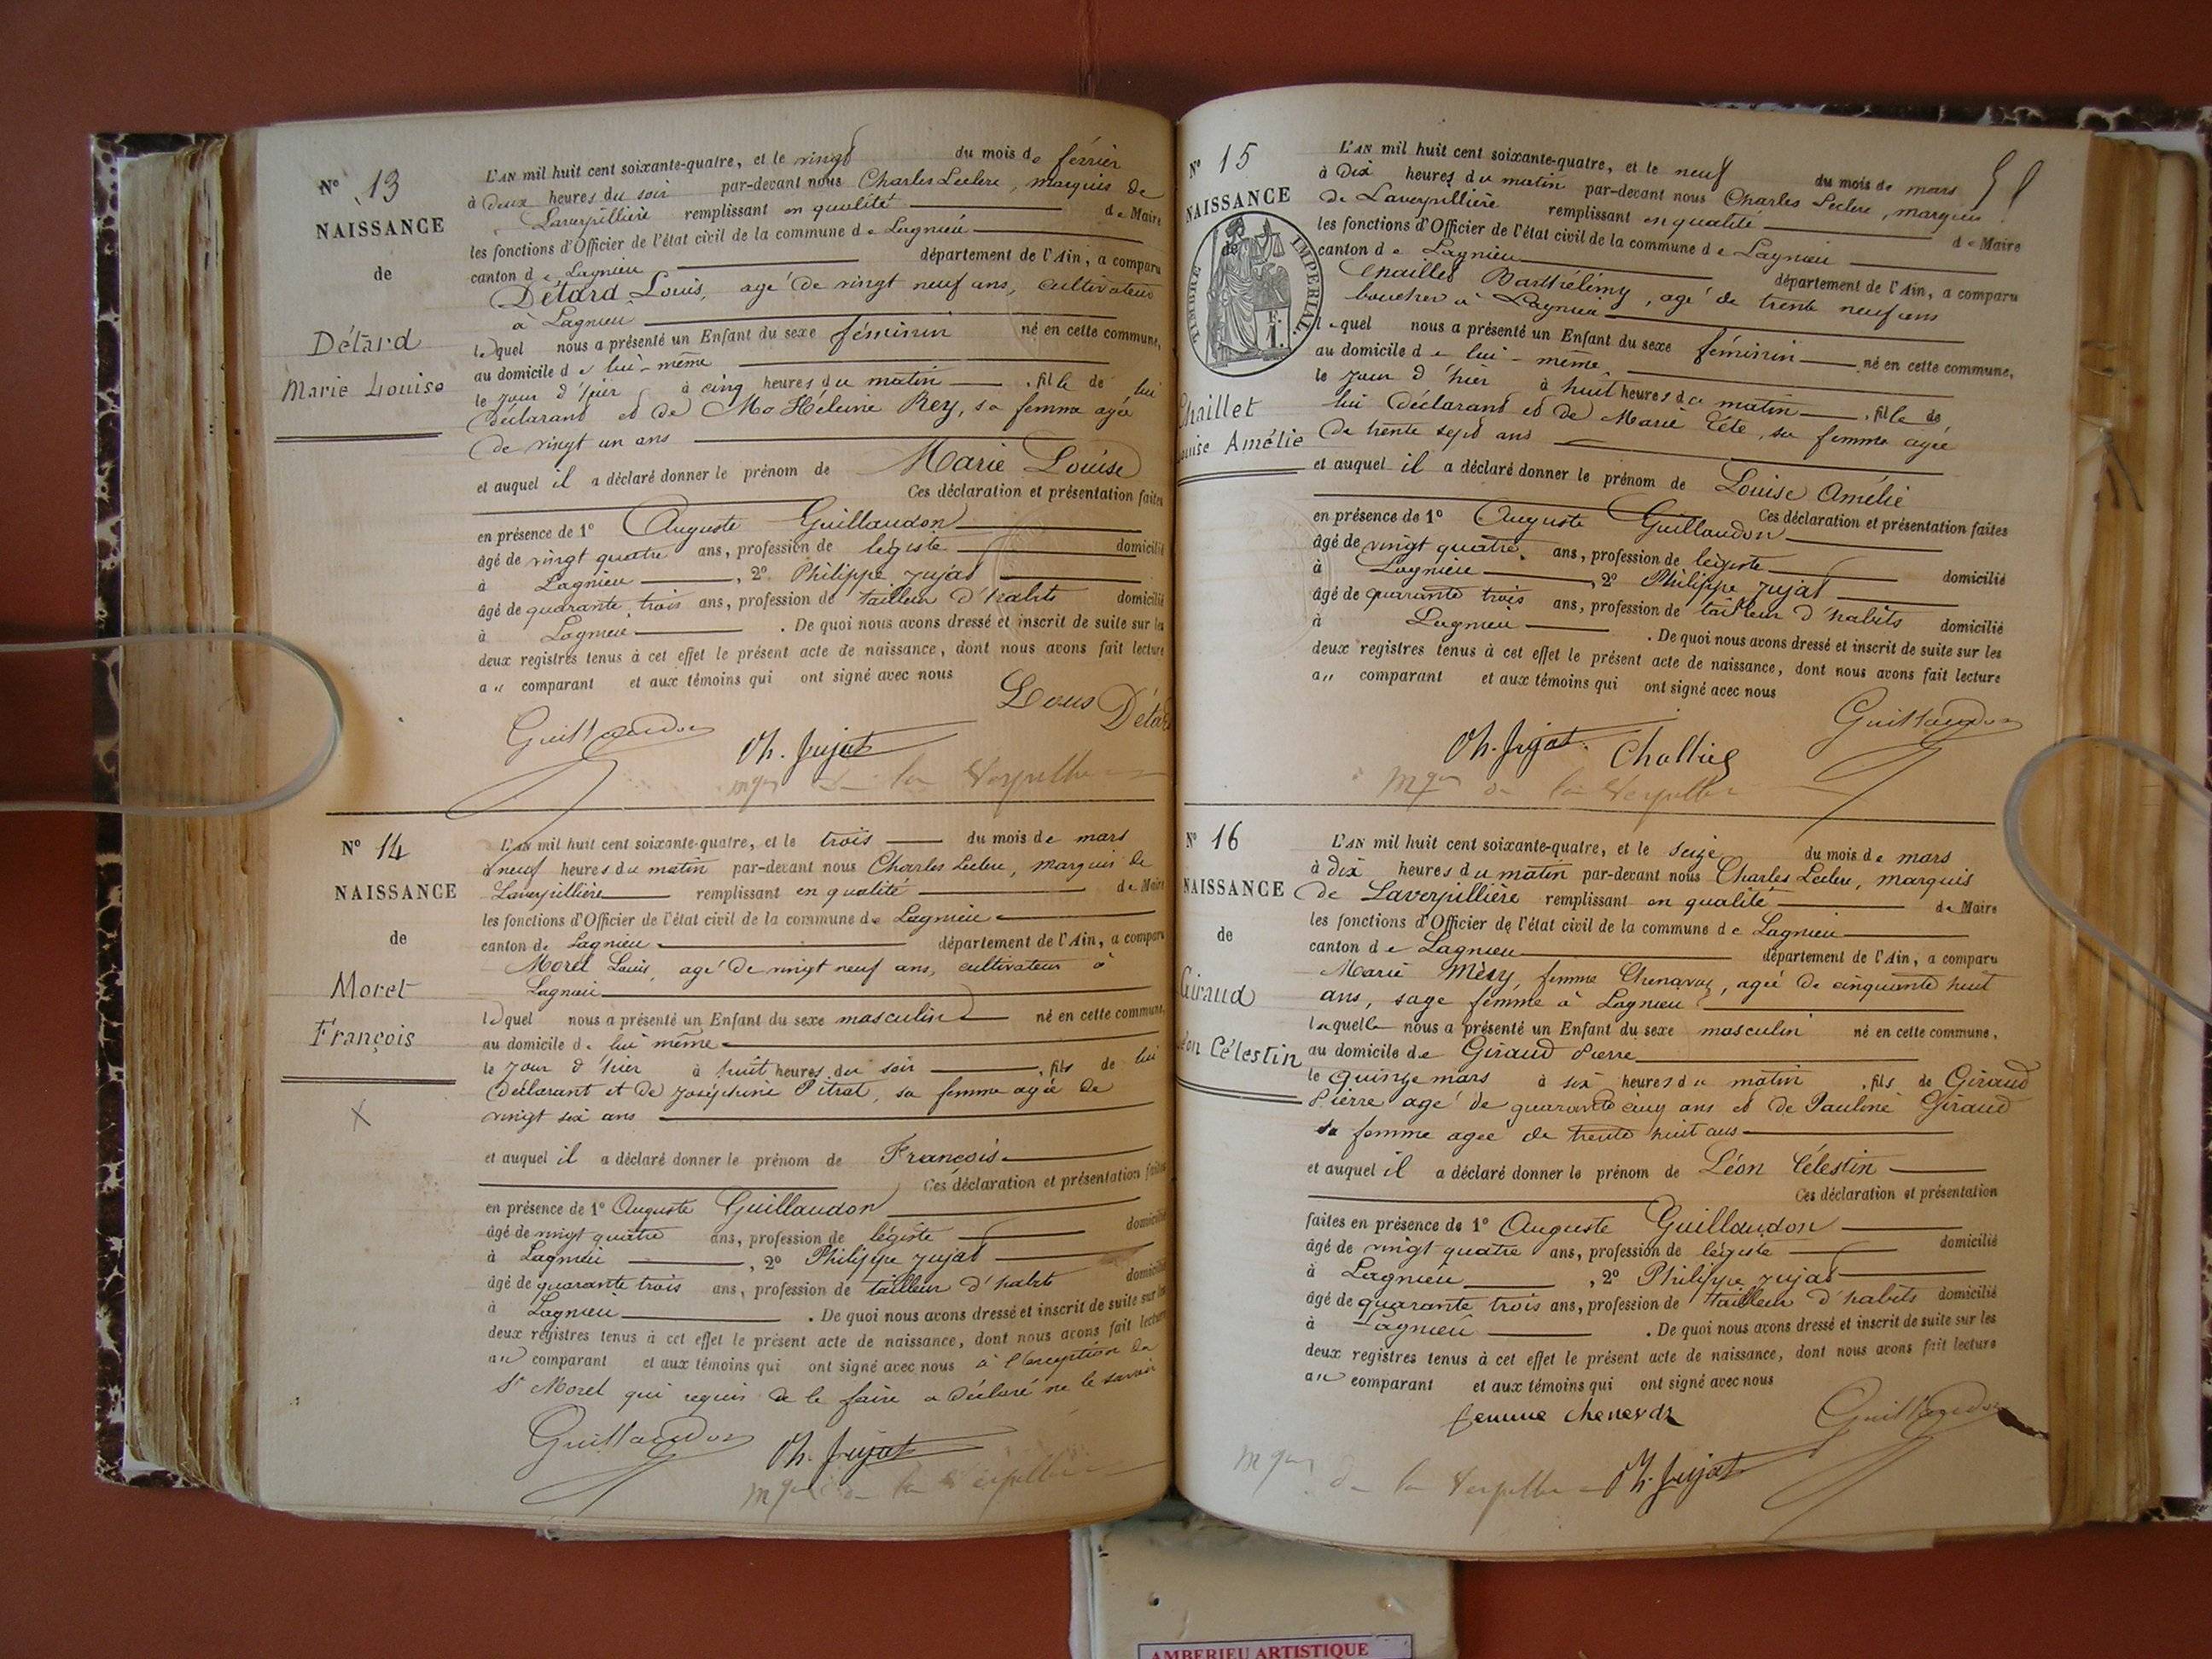 N° 13
NAISSANCE
de
Détard
Marie Louise
L'AN mil huit cent soixante-quatre, et le vingt du mois de février
à deux heures du soir par-devant nous Charles Leclerc, marquis de
Laverpillière remplissant en qualité de Maire
les fonctions d'Officier de l'état civil de la commune de Lagnieu
canton de Lagnieu département de l'Ain, a comparu
Détard Louis, agé de vingt neuf ans, cultivateur
à Lagnieu
lequel nous a présenté un Enfant du sexe féminin né en cette commune,
au domicile de lui-même
le jour d'hier à cinq heures du matin, fille de lui
déclarant et de Hélène Rey, sa femme agée
de vingt un ans
et auquel il a déclaré donner le prénom de Marie Louise
Ces déclaration et présentation faites
en présence de 1° Auguste Guillaudon
âgé de vingt quatre ans, profession de légiste domicilié
à Lagnieu, 2° Philippe Jujat
âgé de quarante trois ans, profession de tailleur d'habits domicilié
à Lagnieu. De quoi nous avons dressé et inscrit de suite sur les
deux registres tenus à cet effet le présent acte de naissance, dont nous avons fait lecture
au comparant et aux témoins qui ont signé avec nous
Louis Détard
Guillaudon
Ph. Jujat
mqis de la Verpillière
N° 14
NAISSANCE
de
Morel
François
X
L'AN mil huit cent soixante-quatre, et le trois du mois de mars
à neuf heures du matin par-devant nous Charles Leclerc, marquis de
Laverpillière remplissant en qualité de Maire
les fonctions d'Officier de l'état civil de la commune de Lagnieu
canton de Lagnieu département de l'Ain, a comparu
Morel Louis, agé de vingt neuf ans, cultivateur à
Lagnieu
lequel nous a présenté un Enfant du sexe masculin né en cette commune,
au domicile de lui même
le jour d'hier à huit heures du soir, fils de lui
déclarant et de Joséphine Pitrat, sa femme agée de
vingt six ans
et auquel il a déclaré donner le prénom de François
Ces déclaration et présentation faites
en présence de 1° Auguste Guillaudon
âgé de vingt quatre ans, profession de légiste domicilié
à Lagnieu, 2° Philippe Jujat
âgé de quarante trois ans, profession de tailleur d'habits domicilié
à Lagnieu. De quoi nous avons dressé et inscrit de suite sur les
deux registres tenus à cet effet le présent acte de naissance, dont nous avons fait lecture
au comparant et aux témoins qui ont signé avec nous à l'exception du
Sr Morel qui requis de le faire a déclaré ne le savoir
Guillaudon
Ph. Jujat
mqis de la Verpillière
N° 15
NAISSANCE
de
TIMBRE IMPERIAL
Chaillet
Louise Amélie
L'AN mil huit cent soixante-quatre, et le neuf du mois de mars
à dix heures du matin par-devant nous Charles Leclerc, marquis
de Laverpillière remplissant en qualité de Maire
les fonctions d'Officier de l'état civil de la commune de Lagnieu
canton de Lagnieu département de l'Ain, a comparu
Chaillet Barthélémy, agé de trente neuf ans
boucher à Lagnieu
lequel nous a présenté un Enfant du sexe féminin né en cette commune,
au domicile de lui-même
le jour d'hier à huit heures du matin, fille de
lui déclarant et de Marie Tête, sa femme agée
de trente sept ans
et auquel il a déclaré donner le prénom de Louise Amélie
Ces déclaration et présentation faites
en présence de 1° Auguste Guillaudon
âgé de vingt quatre ans, profession de légiste domicilié
à Lagnieu, 2° Philippe Jujat
âgé de quarante trois ans, profession de tailleur d'habits domicilié
à Lagnieu. De quoi nous avons dressé et inscrit de suite sur les
deux registres tenus à cet effet le présent acte de naissance, dont nous avons fait lecture
au comparant et aux témoins qui ont signé avec nous
Guillaudon
Ph. Jujat
mqis de la Verpillière
N° 16
NAISSANCE
de
Giraud
Léon Célestin
L'AN mil huit cent soixante-quatre, et le seize du mois de mars
à dix heures du matin par-devant nous Charles Leclerc, marquis
de Laverpillière remplissant en qualité de Maire
les fonctions d'Officier de l'état civil de la commune de Lagnieu
canton de Lagnieu département de l'Ain, a comparu
Marie femme Chenavaz, agée de cinquante huit
ans, sage femme à Lagnieu
laquelle nous a présenté un Enfant du sexe masculin né en cette commune,
au domicile de Giraud Pierre
le quinze mars à six heures du matin, fils de Giraud
Pierre agé de quarante cinq ans et de Pauline Giraud
sa femme agée de trente huit ans
et auquel il a déclaré donner le prénom de Léon Célestin
Ces déclaration et présentation
faites en présence de 1° Auguste Guillaudon
âgé de vingt quatre ans, profession de légiste domicilié
à Lagnieu, 2° Philippe Jujat
âgé de quarante trois ans, profession de tailleur d'habits domicilié
à Lagnieu. De quoi nous avons dressé et inscrit de suite sur les
deux registres tenus à cet effet le présent acte de naissance, dont nous avons fait lecture
au comparant et aux témoins qui ont signé avec nous
femme
Guillaudon
mqis de la Verpillière Ph. Jujat
AMBERIEU ARTISTIQUE